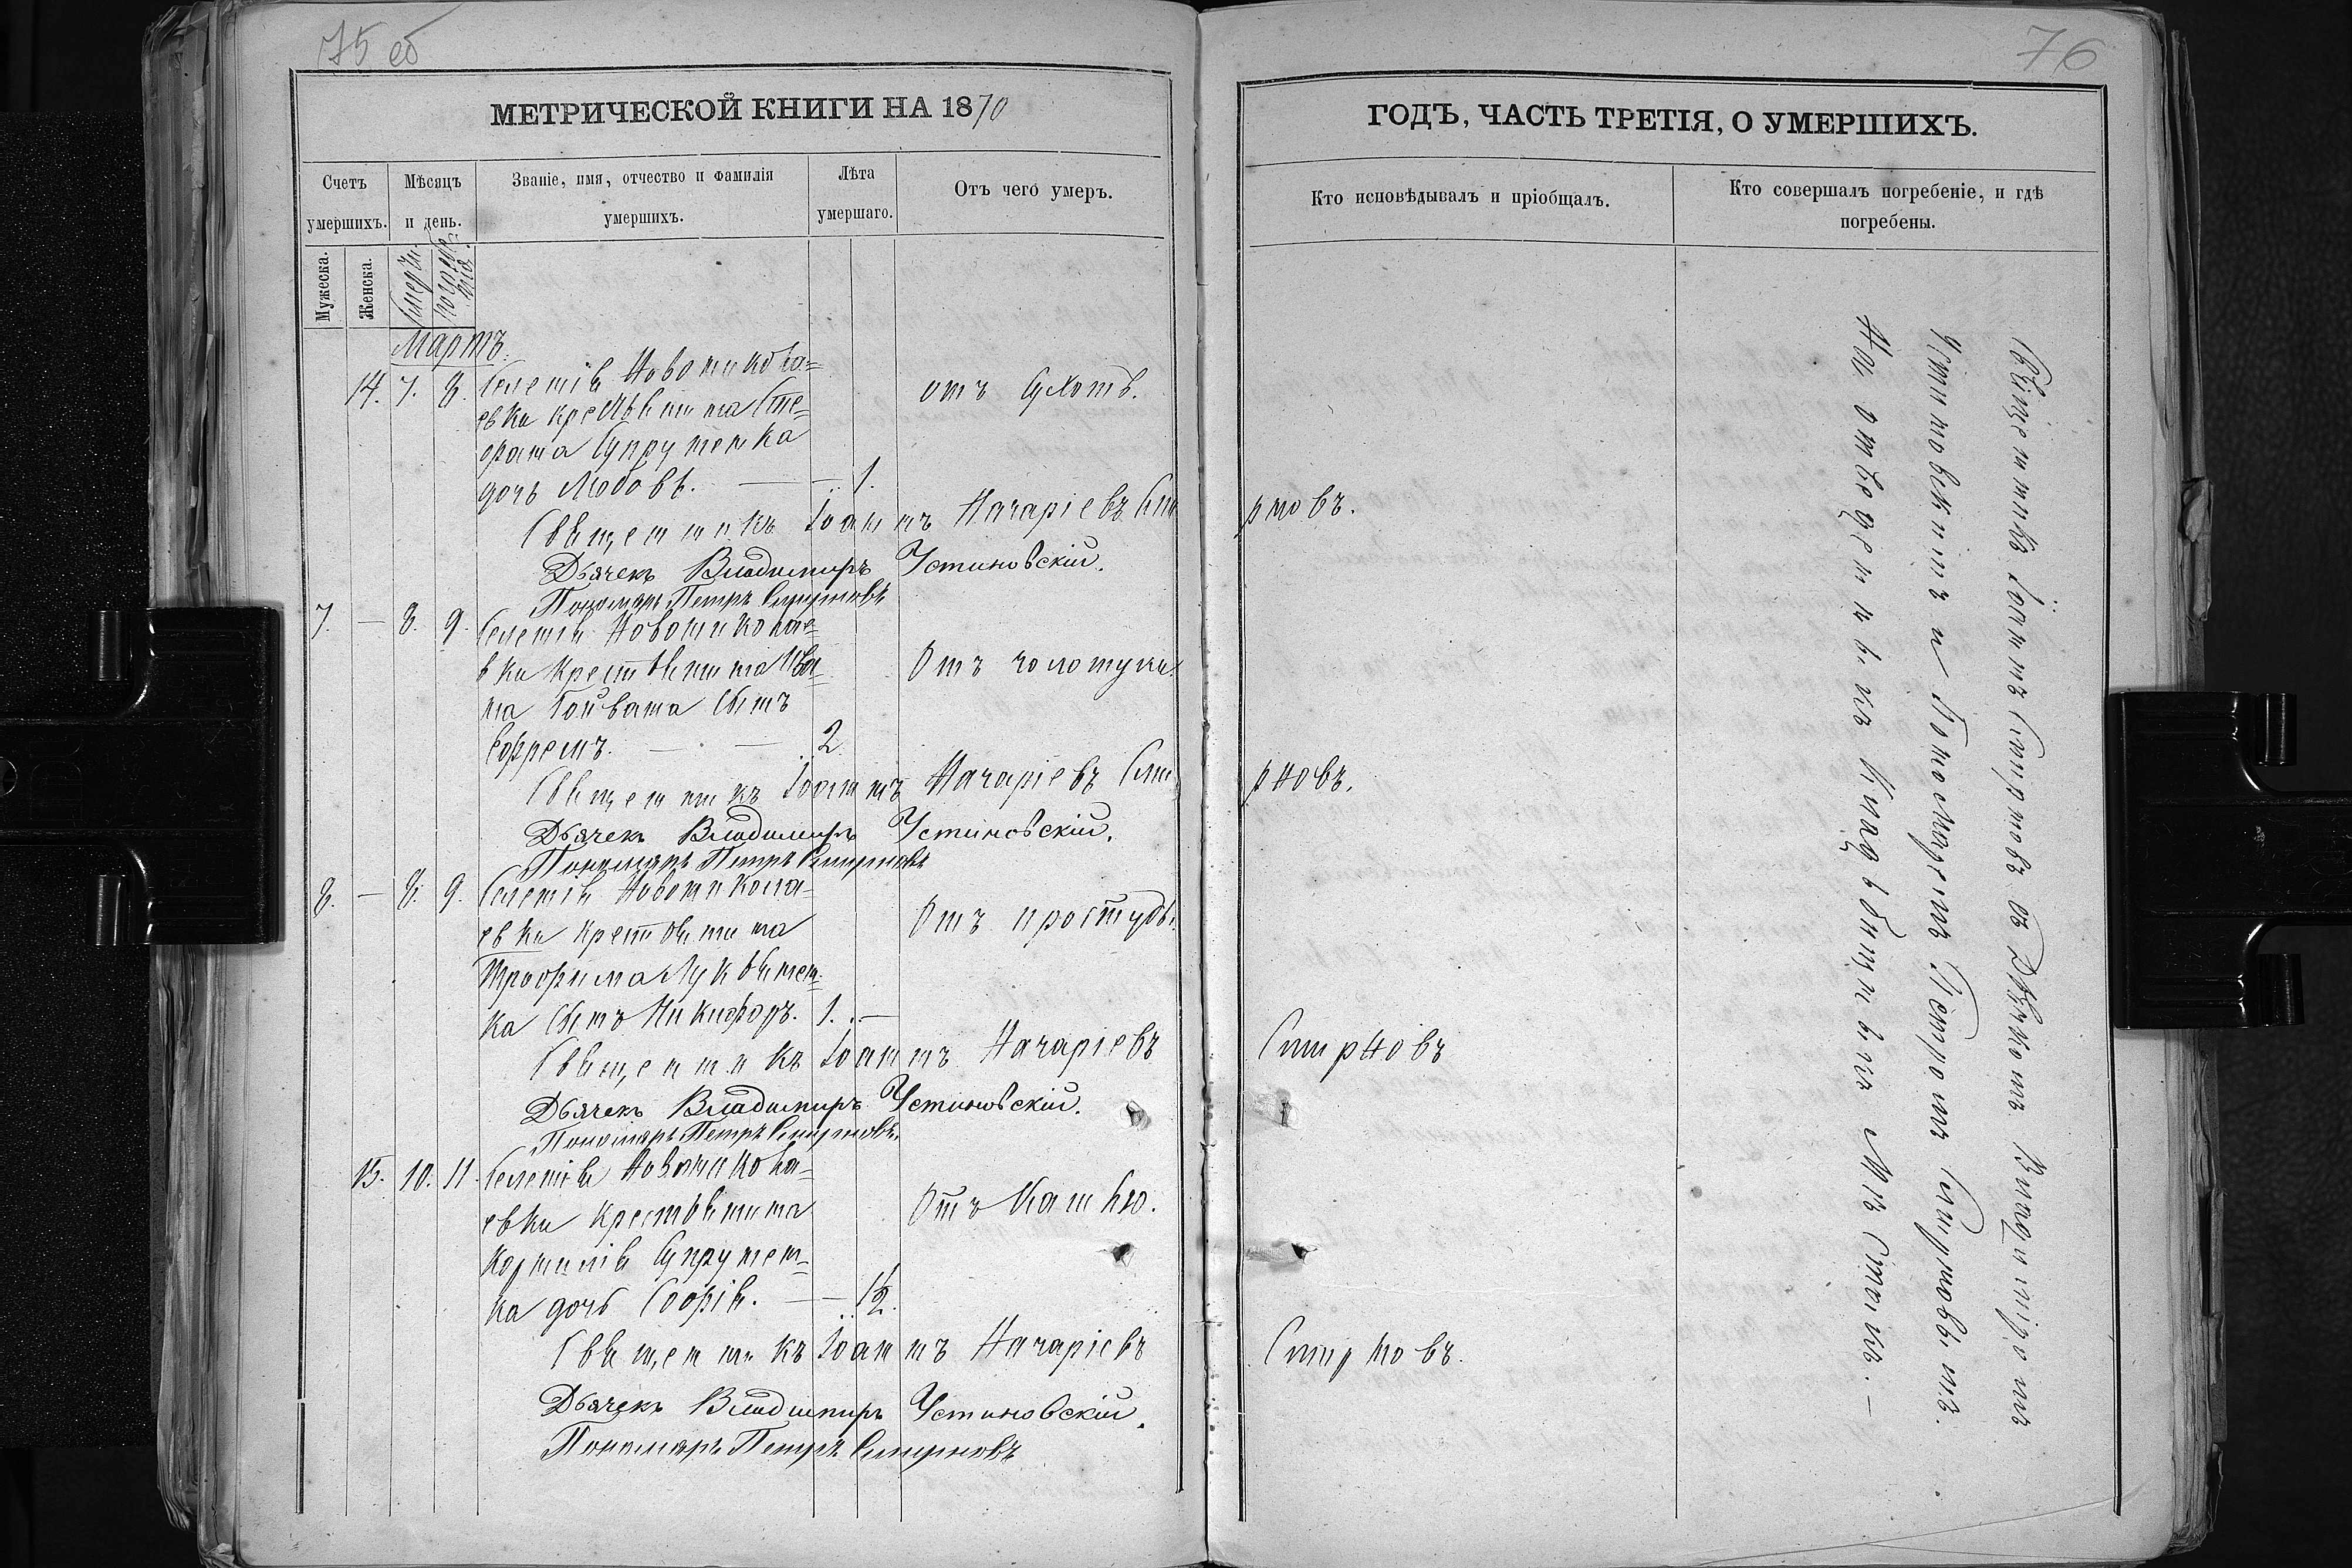 75 об
76
МЕТРИЧЕСКОЙ КНИГИ НА 1870
ГОДЪ, ЧАСТЬ ТРЕТІЯ, О УМЕРШИХЪ.
Счетъ умершихъ.
Мѣсяцъ и день.
Званіе, имя, отчество и фамилія умершихъ.
Лѣта умершаго.
Отъ чего умеръ.
Кто исповѣдывалъ и пріобщалъ.
Кто совершалъ погребеніе, и гдѣ погребены.
Мужеска.
Женска.
Смерти
погребенія
Мартъ.
14. 7. 8. Селенія Новоникола=
евки крестьянина Сте=
фана Супруненка
дочь Любовь. — — 1. отъ сухотъ.
Священникъ Іоаннъ Назаріевъ Смирновъ.
Дьячекъ Владимиръ Устиновскій.
Пономарь Петръ Смирновъ
7. — 8. 9. Селенія Новониколае=
вки крестьянина Ива=
на Гойвана сынъ
Ефремъ. — — 2. Отъ золотухи.
Священникъ Іоаннъ Назаріевъ Смирновъ.
Дьячекъ Владимиръ Устиновскій.
Пономарь Петръ Смирновъ
8. — 8. 9. Селенія Новоникола=
евки крестьянина
Трофима Лукьянен=
ка сынъ Никифоръ. 1. — Отъ простуды.
Священникъ Іоаннъ Назаріевъ Смирновъ
Дьячекъ Владимиръ Устиновскій.
Пономарь Петръ Смирновъ.
15. 10. 11. Селенія Новоникола=
евки крестьянина
Корнилія Супрунен=
ка дочь Софія. — — 1/2. Отъ кашлю.
Священникъ Іоаннъ Назаріевъ Смирновъ.
Дьячекъ Владимиръ Устиновскій.
Пономарь Петръ Смирновъ
Священникъ Іоаннъ Смирновъ съ Дьячкомъ Владиміромъ
Устиновскимъ и Пономаремъ Петромъ Смирновымъ.
На отведенномъ кладбищномъ мѣстѣ. —